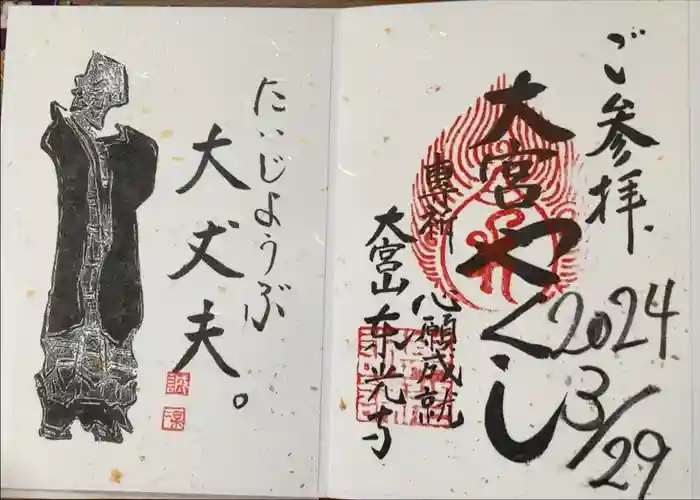 ご参拝
2024
3/29
大宮やくし
専祈
心願成就
大宮山 東光寺
たいじょうぶ
大丈夫。